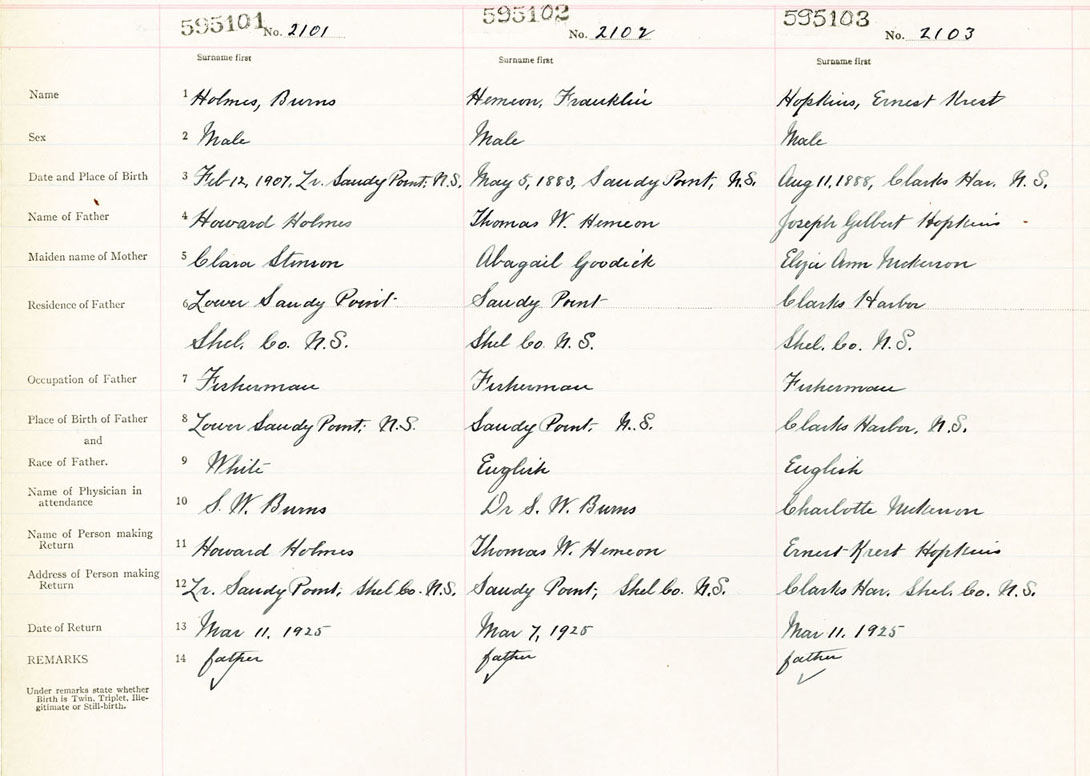 595101 No. 2101 595102 No. 2102 595103 No. 2103
Surname first Surname first Surname first
Name 1 Holmes, Burns Hemeon, Franklin Hopkins, Ernest Krest
Sex 2 Male Male Male
Date and Place of Birth 3 Feb 12, 1907, Lr. Sandy Point, N.S. May 5, 1883, Sandy Point, N.S. Aug 11, 1888, Clarks Har. N.S.
Name of Father 4 Howard Holmes Thomas W. Hemeon Joseph Gilbert Hopkins
Maiden name of Mother 5 Clara Stinson Abagail Goodick Eliza Ann Nickerson
Residence of Father 6 Lower Sandy Point Sandy Point Clarks Harbor
Shel. Co. N.S. Shel Co. N.S. Shel. Co. N.S.
Occupation of Father 7 Fisherman Fisherman Fisherman
Place of Birth of Father 8 Lower Sandy Point, N.S. Sandy Point, N.S. Clarks Harbor, N.S.
and
Race of Father. 9 White English English
Name of Physician in
attendance 10 S. W. Burns Dr S. W. Burns Charlotte Nickerson
Name of Person making
Return 11 Howard Holmes Thomas W. Hemeon Ernest Krest Hopkins
Address of Person making
Return 12 Lr. Sandy Point, Shel Co. N.S. Sandy Point, Shel Co. N.S. Clarks Har. Shel. Co. N.S.
Date of Return 13 Mar 11, 1925 Mar 7, 1925 Mar 11, 1925
REMARKS 14 father father father
Under remarks state whether
Birth is Twin, Triplet, Ille-
gitimate or Still-birth.